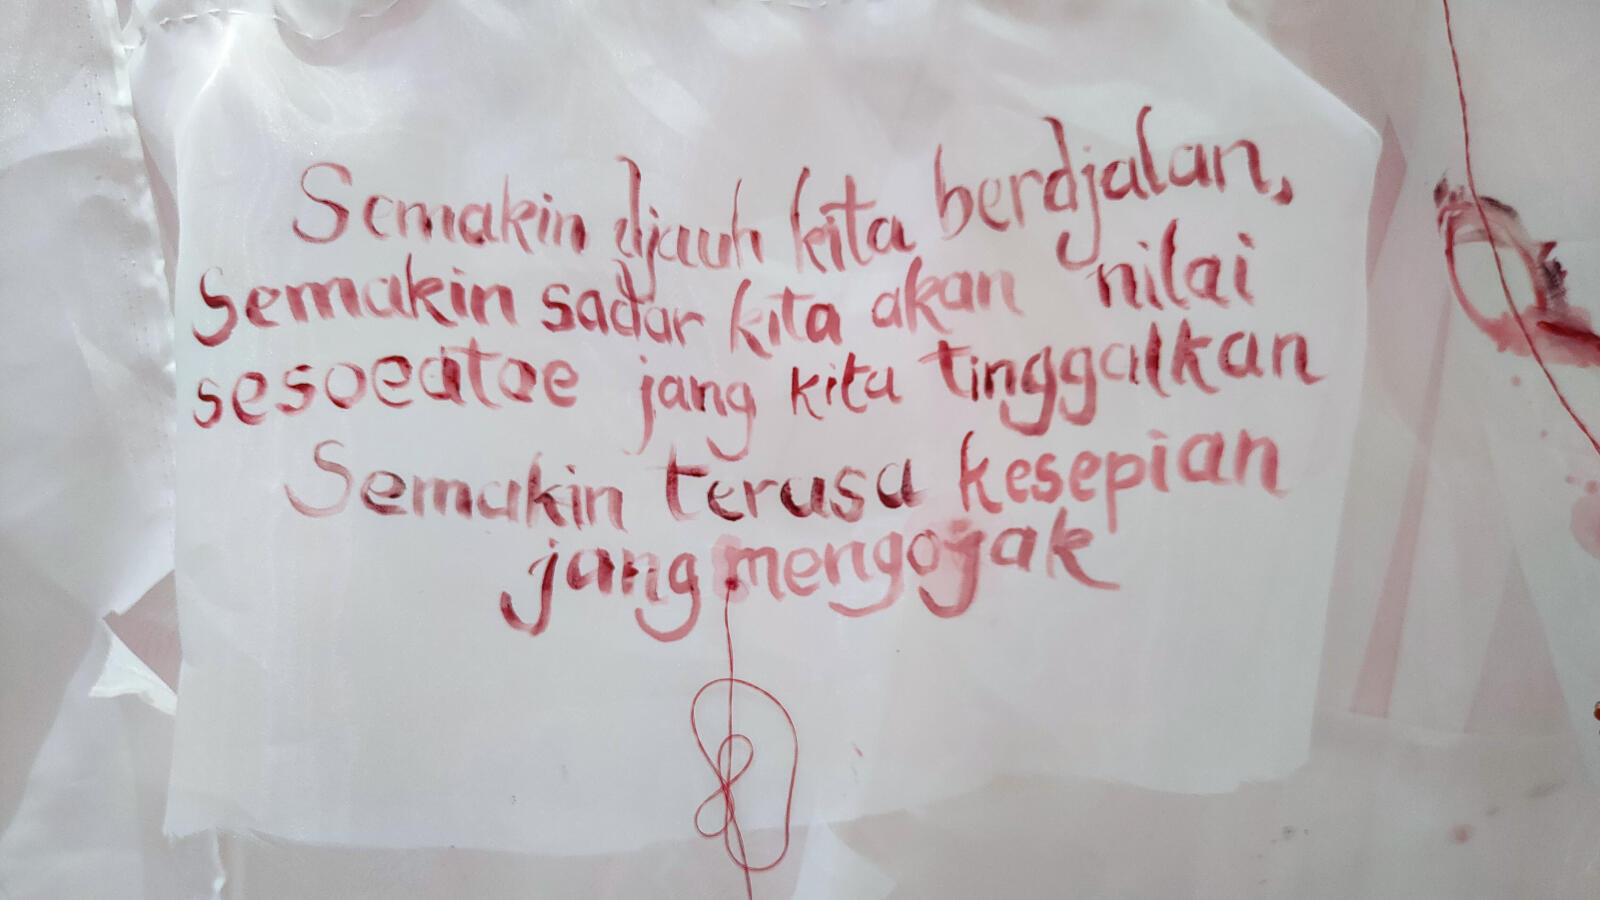 Semakin djauh kita berdjalan,
Semakin sadar kita akan nilai
sesoeatoe jang kita tinggalkan
Semakin terasa kesepian
jang mengojak